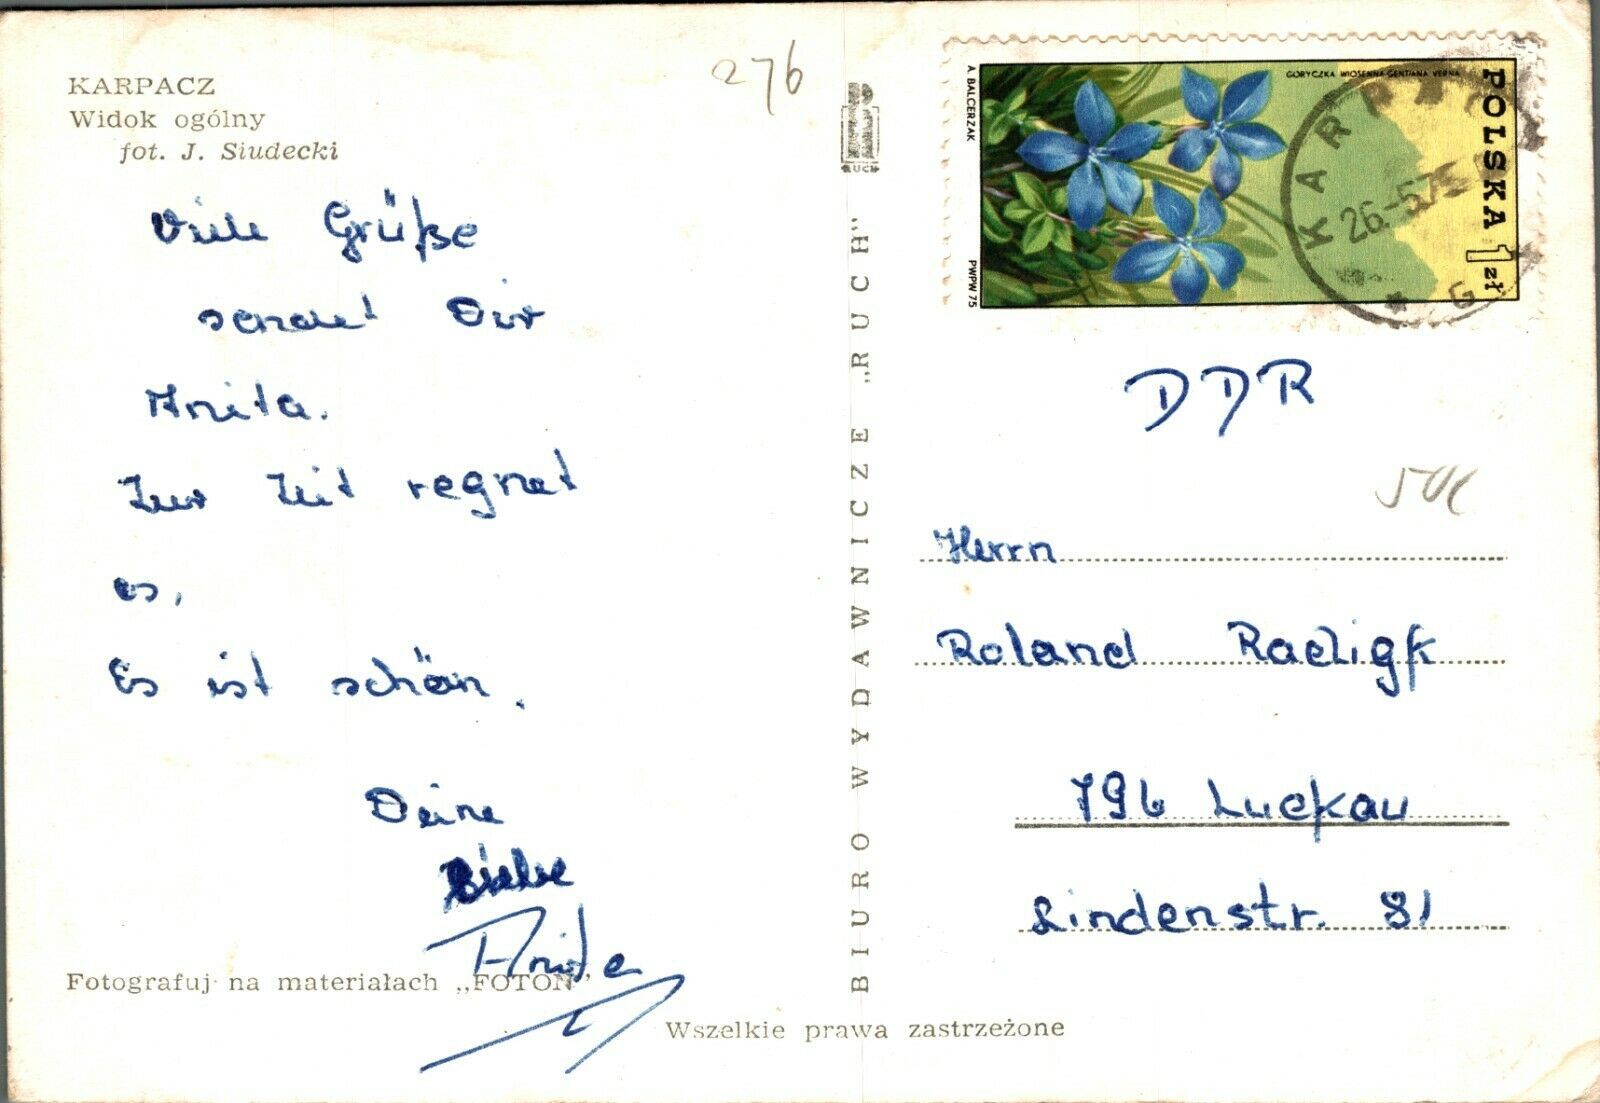 KARPACZ
Widok ogólny
fot. J. Siudecki
276
Viele Grüße
sendet Dir
Anita.
Zur Zeit regnet
es.
Es ist schön.
Deine
Anita
Fotografuj na materiałach „FOTON”
BIURO WYDAWNICZE „RUCH”
Wszelkie prawa zastrzeżone
A. BALCERZAK
PWPW 75
GORYCZKA WIOSENNA-GENTIANA VERNA
POLSKA 1 zł
KARPACZ
26.-5.75
G
DDR
Herrn
Roland Radigk
796 Luckau
Lindenstr. 81